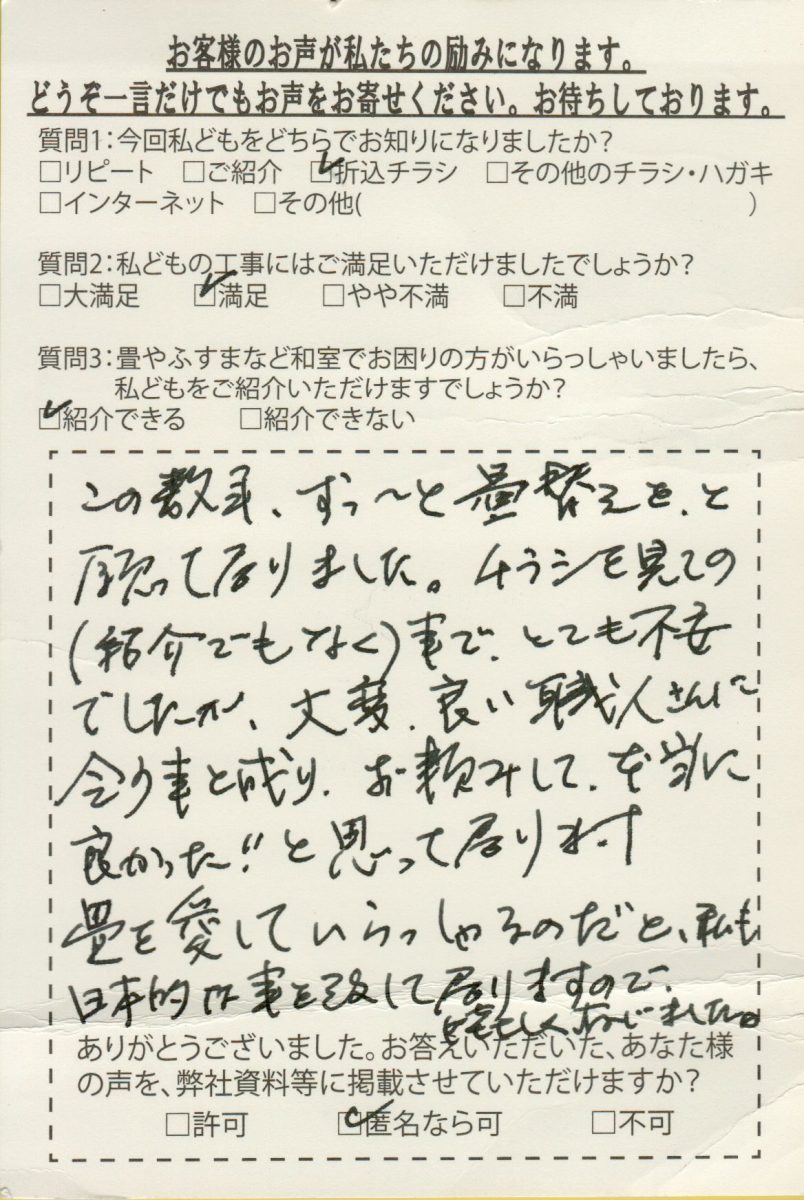 お客様のお声が私たちの励みになります。
どうぞ一言だけでもお声をお寄せください。お待ちしております。
質問1:今回私どもをどちらでお知りになりましたか?
□リピート □ご紹介 ☑折込チラシ □その他のチラシ・ハガキ
□インターネット □その他( )
質問2:私どもの工事にはご満足いただけましたでしょうか?
□大満足 ☑満足 □やや不満 □不満
質問3:畳やふすまなど和室でお困りの方がいらっしゃいましたら、
私どもをご紹介いただけますでしょうか?
☑紹介できる □紹介できない
この数年、ずっ〜と畳替えを、と
願って居りました。チラシを見ての
(紹介でもなく)事で、とても不安
でしたが、大変、良い職人さんに
会う事と成り、お頼みして、本当に
良かった!!と思って居ります
畳を愛していらっしゃるのだと、私も
日本的な事を愛して居りますので、
しく存じました。
ありがとうございました。お答えいただいた、あなた様
の声を、弊社資料等に掲載させていただけますか?
□許可 ☑匿名なら可 □不可